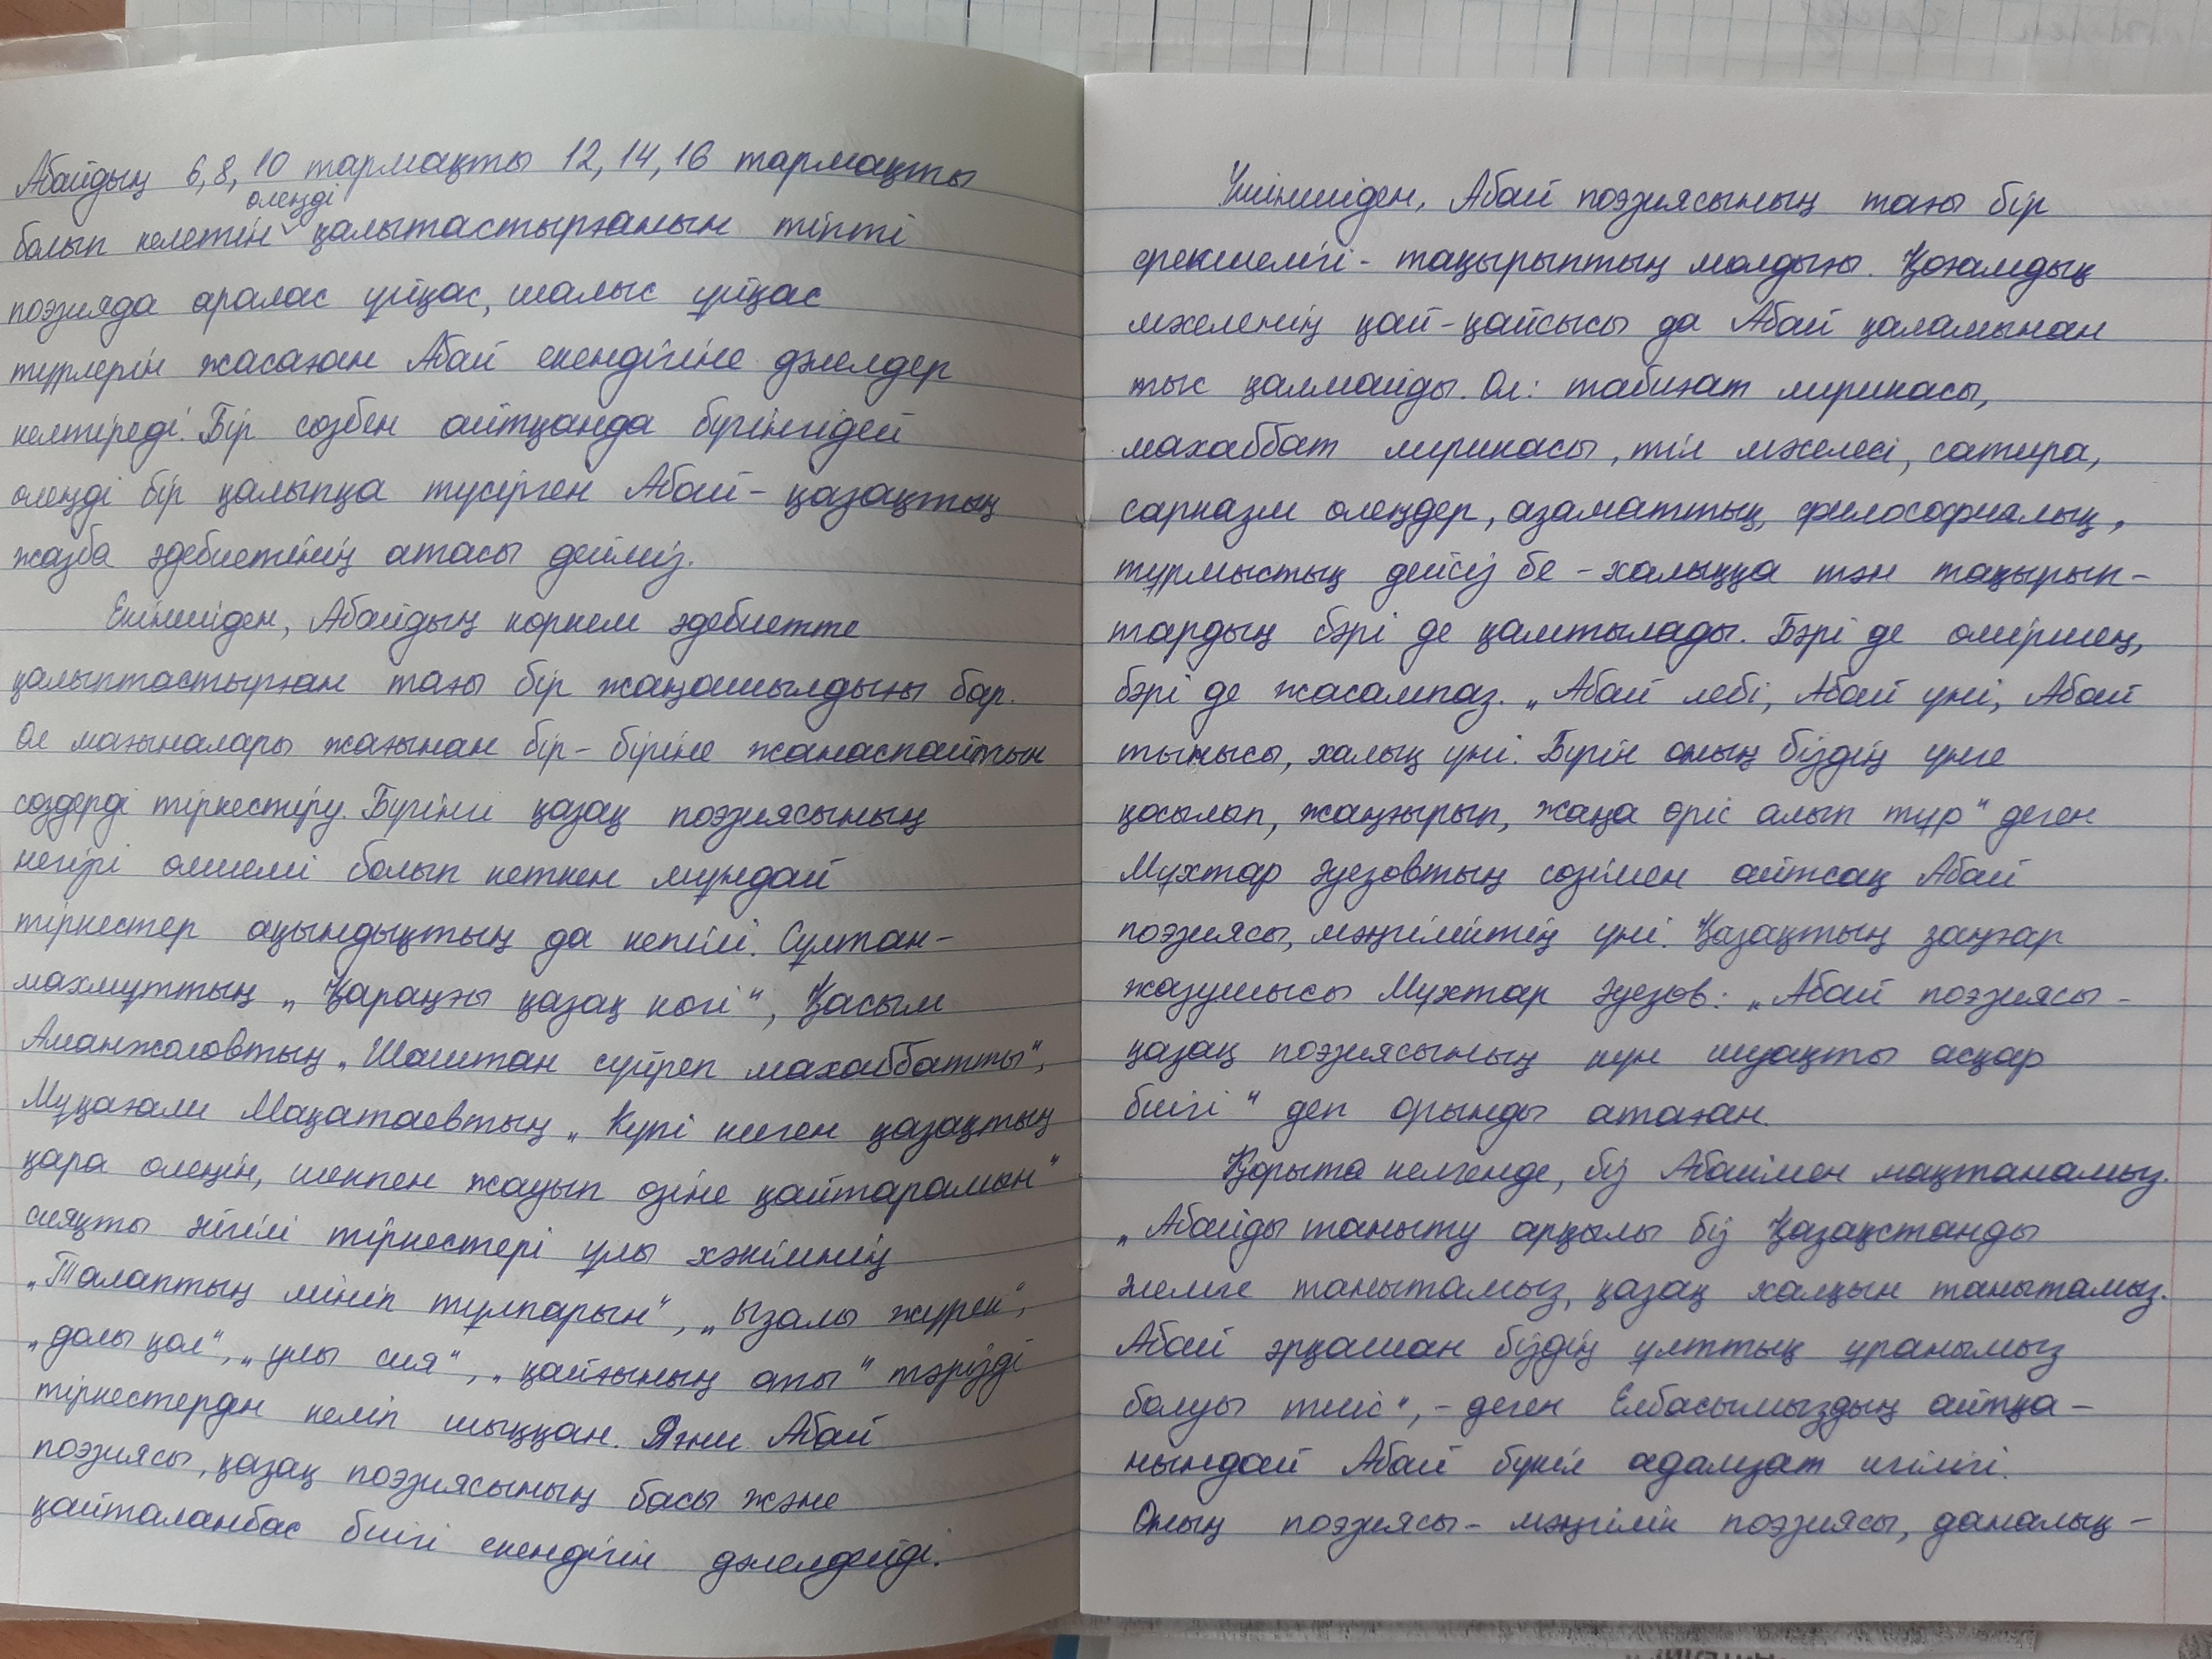 Абайдың 6, 8, 10 тармақты 12, 14, 16 тармақты
өлеңді
болып келетін қалытастырғанын тіпті
поэзияда аралас ұйқас, шалыс ұйқас
түрлерін жасаған Абай екендігіне дәлелдер
келтіреді. Бір сөзбен айтқанда бүгінгідей
өлеңді бір қалыпқа түсірген Абай - қазақтың
жазба әдебиетінің атасы дейміз.
Екіншіден, Абайдың көркем әдебиетте
қалыптастырған тағы бір жаңашылдығы бар.
Ол мағыналары жағынан бір-біріне жанаспайтын
сөздерді тіркестіру. Бүгінгі қазақ поэзиясының
негізгі өлшемі болып кеткен мұндай
тіркестер ақындықтың да кепілі. Сұлтан-
махмұттың „Қараңғы қазақ көгі“, Қасым
Аманжоловтың „Шаштан сүйреп махаббатты“,
Мұқағали Мақатаевтың „Күпі киген қазақтың
қара өлеңін, шекпен жауып өзіне қайтарамын“
сияқты әйгілі тіркестері ұлы хәкімнің
„Талаптың мініп тұлпарын“, „ызалы жүрек“,
„долы қол“, „улы сия“, „қайғының аты“ тәрізді
тіркестерден келіп шыққан. Яғни Абай
поэзиясы, қазақ поэзиясының басы және
қайталанбас биігі екендігін дәлелдейді.
Үшіншіден, Абай поэзиясының тағы бір
ерекшелігі - тақырыптың молдығы. Қоғамдық
мәселенің қай-қайсысы да Абай қаламынан
тыс қалмайды. Ол: табиғат лирикасы,
махаббат лирикасы, тіл мәселесі, сатира,
сарказм өлеңдер, азаматтық, философиялық,
тұрмыстық дейсіз бе - халыққа тән тақырып-
тардың бәрі де қамтылады. Бәрі де өміршең,
бәрі де жасампаз. „Абай лебі, Абай үні, Абай
тынысы, халық үні. Бүгін оның біздің үнге
қосылып, жаңғырып, жаңа өріс алып тұр“ деген
Мұхтар Әуезовтың сөзімен айтсақ Абай
поэзиясы, мәңгіліктің үні. Қазақтың заңғар
жазушысы Мұхтар Әуезов: „Абай поэзиясы -
қазақ поэзиясының күн шуақты асқар
биігі“ деп орынды атаған.
Қорыта келгенде, біз Абаймен мақтанамыз.
„Абайды таныту арқылы біз Қазақстанды
әлемге танытамыз, қазақ халқын танытамыз.
Абай әрқашан біздің ұлттық ұранымыз
болуы тиіс“, - деген Елбасымыздың айтқа-
нындай Абай бүкіл адамзат игілігі.
Оның поэзиясы - мәңгілік поэзиясы, даналық -